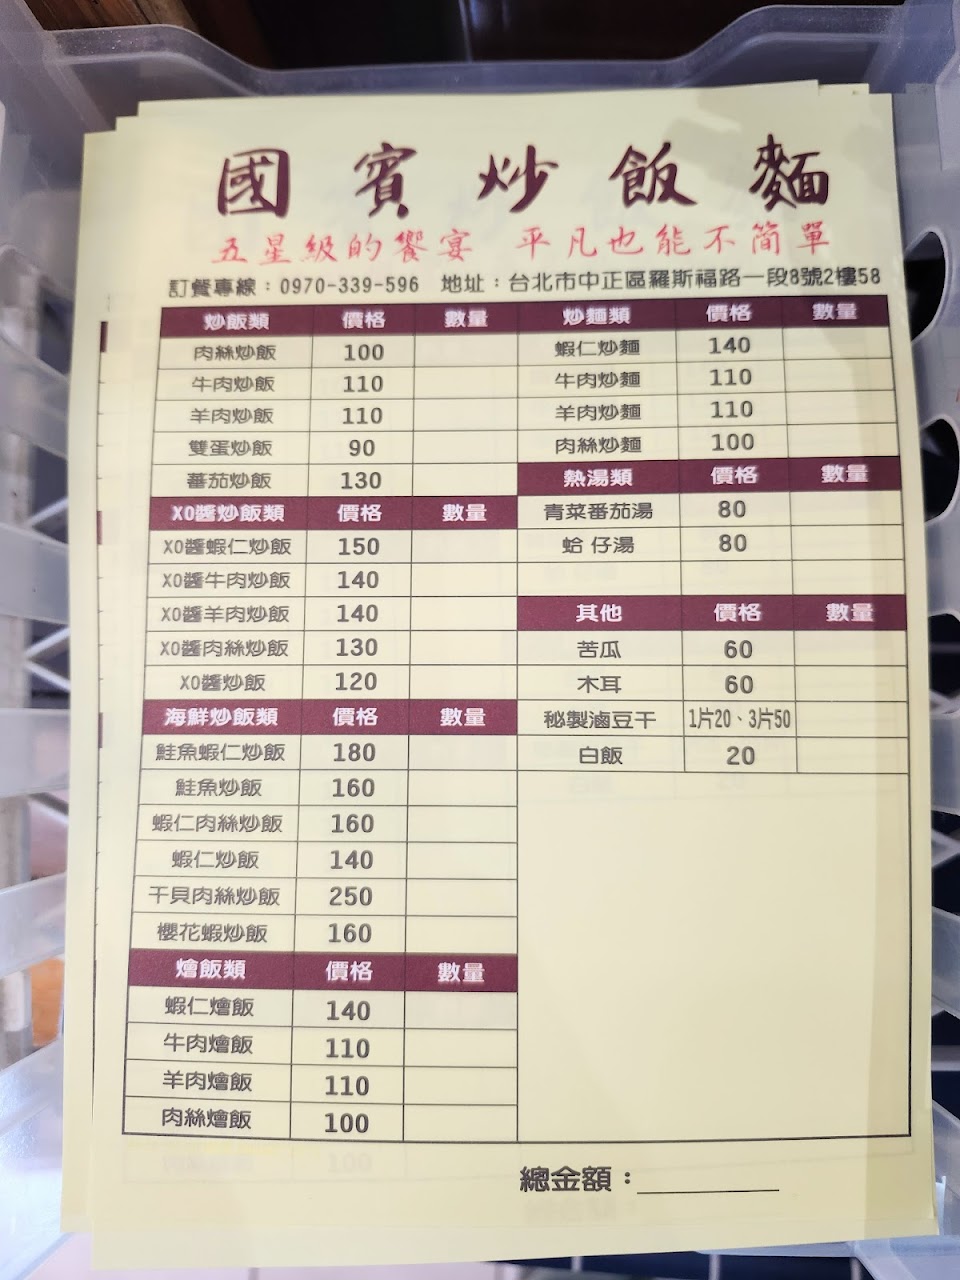 國賓炒飯麵
五星級的饗宴 平凡也能不簡單
訂餐專線：0970-339-596 地址：台北市中正區羅斯福路一段8號2樓58
炒飯類 價格 數量
肉絲炒飯 100
牛肉炒飯 110
羊肉炒飯 110
雙蛋炒飯 90
蕃茄炒飯 130
XO醬炒飯類 價格 數量
XO醬蝦仁炒飯 150
XO醬牛肉炒飯 140
XO醬羊肉炒飯 140
XO醬肉絲炒飯 130
XO醬炒飯 120
海鮮炒飯類 價格 數量
鮭魚蝦仁炒飯 180
鮭魚炒飯 160
蝦仁肉絲炒飯 160
蝦仁炒飯 140
干貝肉絲炒飯 250
櫻花蝦炒飯 160
燴飯類 價格 數量
蝦仁燴飯 140
牛肉燴飯 110
羊肉燴飯 110
肉絲燴飯 100
炒麵類 價格 數量
蝦仁炒麵 140
牛肉炒麵 110
羊肉炒麵 110
肉絲炒麵 100
熱湯類 價格 數量
青菜番茄湯 80
蛤仔湯 80
其他 價格 數量
苦瓜 60
木耳 60
秘製滷豆干 1片20、3片50
白飯 20
總金額：